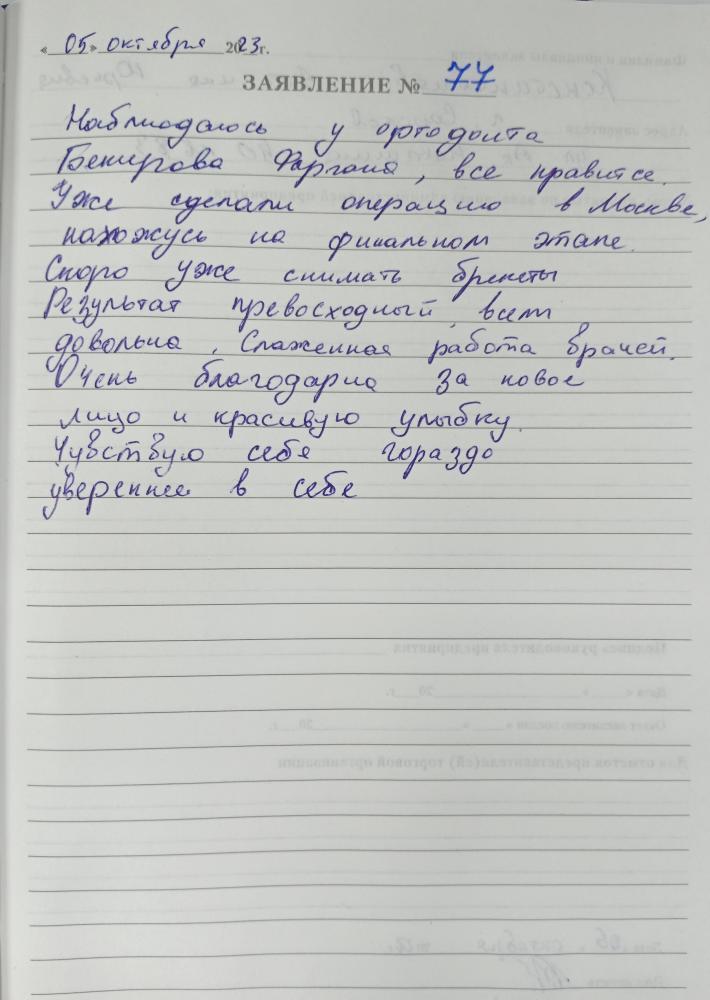 «05» октября 2023г.
ЗАЯВЛЕНИЕ № 77
Наблюдаюсь у ортодонта
Бекирова Фаргана, все нравится.
Уже сделали операцию в Москве,
нахожусь на финальном этапе.
Скоро уже снимать брекеты
Результат превосходный, всем
довольна, Слаженная работа врачей.
Очень благодарна за новое
лицо и красивую улыбку.
Чувствую себя гораздо
увереннее в себе